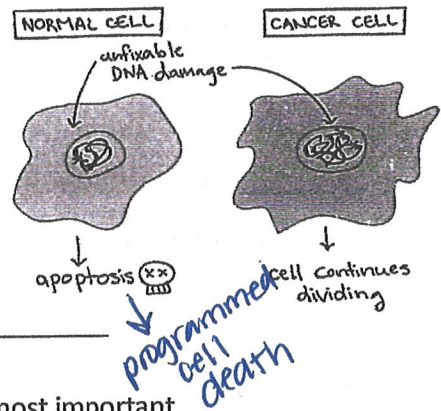 NORMAL CELL
CANCER CELL
unfixable
DNA damage
apoptosis
xx
cell continues
dividing
programmed
cell
death
most important